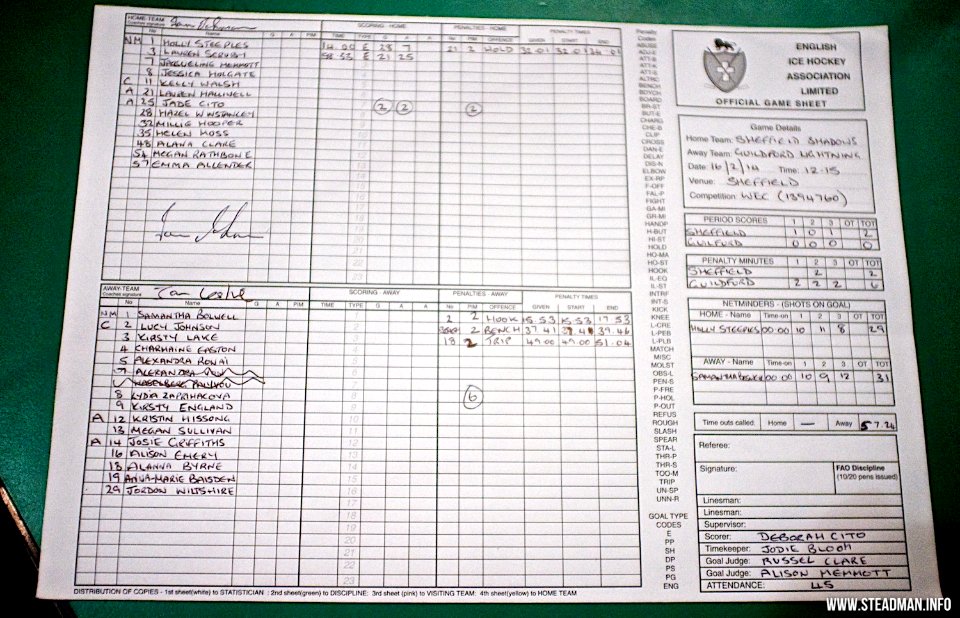 HOME-TEAM
Coaches signature
SCORING - HOME
PENALTIES - HOME
PENALTY TIMES
No Name G A PIM TIME TYPE G A A No PIM OFFENCE GIVEN START END
NM 1 HOLLY STEEPLES 14.00 E 28 7 21 2 HOLD 32.01 32.01 34.01
3 LAUREN SCRUBY 58.53 E 21 25
7 JACQUELINE MEMMOTT
8 JESSICA HOLGATE
C 11 KELLY WALSH
A 21 LAUREN HALLIWELL
A 25 JADE CITO 2 2 2
28 HAZEL WINSTANLEY
32 MILLIE HOOPER
35 HELEN MOSS
48 ALANA CLARE
54 MEGAN RATHBONE
57 EMMA ALLENDER
22
23
AWAY-TEAM
Coaches signature
SCORING - AWAY
PENALTIES - AWAY
PENALTY TIMES
No Name G A PIM TIME TYPE G A A No PIM OFFENCE GIVEN START END
NM 1 SAMANTHA BOLWELL 2 2 HOOK 15.53 15.53 17.53
C 2 LUCY JOHNSON BENCH 2 BENCH 37.41 39.46
3 KIRSTY LAKE 18 2 TRIP 49.00 49.00 51.04
4 CHARMAINE EASTON
5 ALEXANDRA RONAI
7 ALEXANDRA
8 LYDIA ZAPRIHACOVA 6
9 KIRSTY ENGLAND
A 12 KRISTIN HISSONG
13 MEGAN SULLIVAN
A 14 JOSIE GRIFFITHS
16 ALISON EMERY
18 ALANNA BYRNE
19 ANNA-MARIE BAISDEN
29 JORDON WILTSHIRE
16
17
18
19
20
21
22
23
DISTRIBUTION OF COPIES - 1st sheet(white) to STATISTICIAN : 2nd sheet(green) to DISCIPLINE: 3rd sheet (pink) to VISITING TEAM: 4th sheet(yellow) to HOME TEAM
Penalty
Codes
ABUSE
AG-E
ATT-B
ATT-K
ATT-S
ALTRC
BENCH
BDYCH
BOARD
BR-ST
BUT-E
CHARG
CHE-B
CLIP
CROSS
DAN-E
DELAY
DIS-N
ELBOW
EX-RP
F-OFF
FAL-P
FIGHT
GA-MI
GR-MI
HANDP
H-BUT
HI-ST
HOLD
HO-MA
HO-ST
HOOK
IL-EQ
IL-ST
INTRF
INT-S
KICK
KNEE
L-CRE
L-PEB
L-PLB
MATCH
MISC
MOLST
OBS-L
PEN-S
P-FRE
P-HOL
P-OUT
REFUS
ROUGH
SLASH
SPEAR
STA-L
THR-P
THR-S
TOO-M
TRIP
UN-SP
UNN-R
GOAL TYPE
CODES
E
PP
SH
DP
PS
PG
ENG
ENGLISH
ICE HOCKEY
ASSOCIATION
LIMITED
OFFICIAL GAME SHEET
Game Details
Home Team: SHEFFIELD SHADOWS
Away Team: GUILDFORD LIGHTNING
Date: 16/2/14 Time: 12.15
Venue: SHEFFIELD
Competition: WEC (1394760)
PERIOD SCORES 1 2 3 OT TOT
SHEFFIELD 1 0 1 2
GUILFURD 0 0 0 0
PENALTY MINUTES 1 2 3 OT TOT
SHEFFIELD 2 2
GUILDFURD 2 2 2 6
NETMINDERS - (SHOTS ON GOAL)
HOME - Name Time-on 1 2 3 OT TOT
HOLLY STEEPLES 00.00 10 11 8 29
AWAY - Name Time-on 1 2 3 OT TOT
00.00 10 9 12 31
Time outs called. Home — Away 57.24
Referee:
Signature:
FAO Discipline
(10/20 pens issued)
Linesman:
Linesman:
Supervisor:
Scorer: DEBORAH CITO
Timekeeper: JODIE BLOOM
Goal Judge: RUSSEL CLARE
Goal Judge: ALISON MEMMOTT
ATTENDANCE: 45
WWW.STEADMAN.INFO